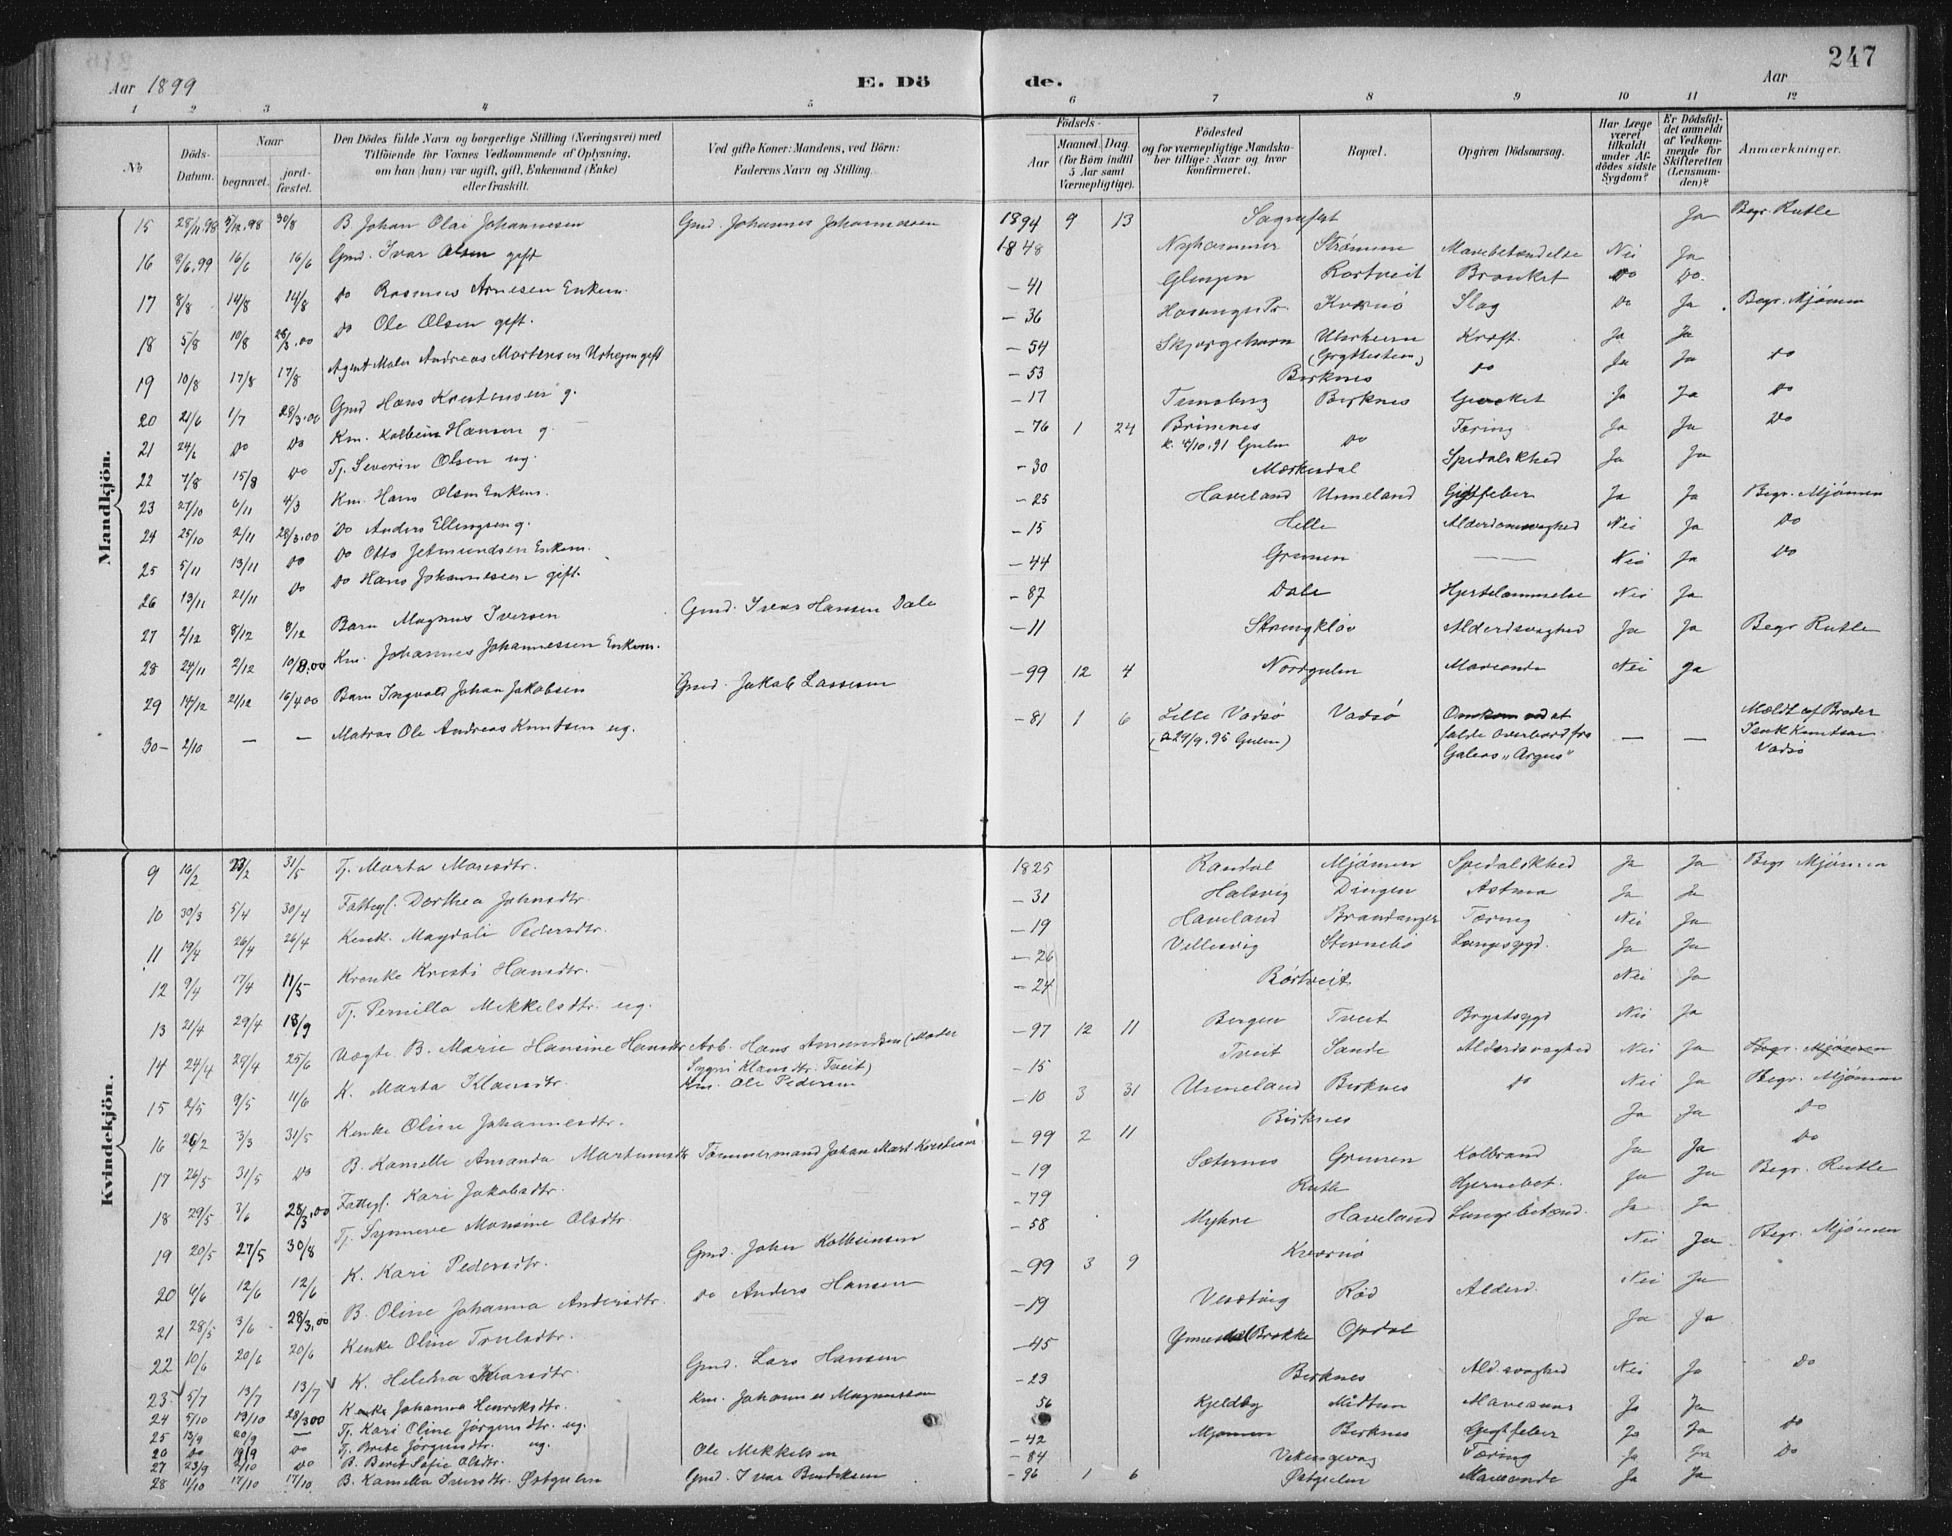 247
Aar 1899
E. Dö
de.
Aar
1 2 3 4 5 6 7 8 9 10 11 12
No
Döds-Datum.
Naar
begravet.
jord-fæstet.
Den Dödes fulde Navn og borgerlige Stilling (Næringsvei) med
Tilföiende for Voxnes Vedkommende af Oplysning,
om han (hun) var ugift, gift, Enkemand (Enke)
eller fraskilt.
Ved gifte Koner: Mandens, ved Börn:
Faderens Navn og Stilling.
Födsels-
Aar
Maaned. Dag.
(for Börn indtil
5 Aar samt
Værnepligtige).
Födested
og for værnepligtige Mandska-
ber tillige: Naar og hvor
konfirmeret.
Bopæl.
Opgiven Dödsaarsag.
Har Læge
været
tilkaldt
under Af-
dödes sidste
Sygdom?
Er Dödsfal-
det anmeldt
af Vedkom-
mende for
Skifteretten
(Lensman-
den)?
Anmærkninger.
Mandkjön.
15 28/11.98 5/12.98 30/8 B. Johan Olai Johannesen Gmd. Johannes Johannessen 1894 9 13 Ja Begr. Rutle
16 8/6.99 16/6 16/6 Gmd. Ivar Olsen gift 1848 Nyhammer Strömme Mavebetændelse Nei Ja
17 8/8 14/8 14/8 do Rasmus Arnesen Enkem. -41 Glengen Kortveit Bronket do do.
18 5/8 10/8 28/3.00 do Ole Olsen gift. -36 Hosanger Pr. Kversö Slag do Ja Begr. Mjömen
19 10/8 17/8 17/8 Agent Maler Andreas Mortensen Urhegn gift -54 Skjærgehavn (Gryttestein) Kræft. Ja Ja
20 21/6 1/7 28/3.00 Gmd Hans Kristensen g. -53 Birknes do Ja Ja do
21 24/6 do do Km. Kolbein Hansen g. -17 Birknes Ja Ja do
22 7/8 15/8 do Tj. Severin Olsen ug. -76 1 24 Brimnes k. 4/10.91 Gulen do Tæring Ja Ja do
23 27/10 6/11 4/3 Km. Hans Olsen Enkem. -30 Mærkesdal Spedalskhed Ja Ja
24 25/10 2/11 28/3.00 do Anders Ellingsen g. -25 Haveland Unneland Gigtfeber Ja Ja Begr. Mjömen
25 5/11 13/11 do do Otto Jetmundsen Enkem. -15 Helle Alderdomsvaghed Nei Ja do
26 13/11 21/11 do do Hans Johannessen gift. -44 Grunen Nei Ja do
27 2/12 8/12 8/12 Barn Magnus Iversen Gmd. Ivar Hansen Dale -87 Dale Hjertelammelse Nei Ja
28 24/11 2/12 10/8.00 Km. Johannes Johannessen Enkem. -11 Alderdsvaghed Ja Ja Begr Rutle
29 14/12 21/12 16/4 00 Barn Ingvald Johan Jakobsen Gmd. Jakob Lassesen -99 12 4 Nordgulen Maveonde Nei Ja
30 2/10 — — Matros Ole Andreas Knutsen ug. -81 1 6 Lille Vadsö (k 29/9.95 Gulen) Vadsö Omkom ved at
falde overbord fra
Galeas "Argus" — — Mældt af Broder
Isak Knutsen
Vadsö
Kvindekjön.
9 16/2 23/2 31/5 Tj. Marta Monsdtr. 1825 Randal Mjömen Spedalskhed Ja Ja Begr Mjömen
10 30/3 5/4 30/4 Fattigl. Dorthea Johnsdtr. -31 Halsvig Dingen Astma Ja Ja
11 19/4 26/4 26/4 Kenk. Magdali Pedersdtr. -19 Haveland Brandanger Tæring Nei Ja
12 9/4 17/4 11/5 Krenke Kristi Hansdtr. -26 Villesvig Lungesygd. Ja Ja
13 21/4 29/4 18/9 Tj. Pernilla Mikkelsdtr. ug. -24 Börtveit Nei Ja
14 24/4 29/4 25/6 Uægte B. Marie Hansine Hansdtr Arb. Hans Amundsen (Moder
Sygni Klausdtr. Tveit) -97 12 11 Bergen Tveit Brystsygd Nei Ja
15 2/5 9/5 11/6 K. Marta Klausdtr. Km. Ole Pedersen -15 Tveit Sande Alderdsvaghed Nei Ja Begr. Mjömen
16 26/2 3/3 31/5 Kenke Oline Johannesdtr. -10 3 31 Unneland Birknes do Nei Ja Begr. Mjömen
17 26/5 31/5 do B. Kamille Amanda Martinusdtr Tömmermand Johan Mart. -99 2 11 Birknes Ja Ja do
18 29/5 3/6 28/3.00 Fattigl. Kari Jakobsdtr. -19 Sæternes Grunen Koldbrand Ja Ja do
19 20/5 27/5 30/8 Tj. Synneve Monsine Olsdtr. -79 Rutle Hjernebet. Ja Ja Begr. Rutle
20 6/6 12/6 12/6 K. Kari Pedersdtr. Gmd. Johan Kolbeinsen -58 Myhre Haveland Lungebetænd. Ja Ja
21 28/5 3/6 28/3.00 B. Oline Johanna Andersdtr. do Anders Hansen -99 3 9 Kversö Nei Ja Begr. Mjömen
22 10/6 20/6 20/6 Kenke Oline Trulsdtr. -19 Röd Alderd. Nei Ja
23 5/7 13/7 13/7 K. Helena Gmd. Lars Hansen -45 Brekke Opdal Ja Ja
24 5/10 13/10 28/3 00 Johanna Henriksdtr. Km. Johannes Magnussen -23 Birknes Ald.svaghed Nei Ja do
25 13/9 20/9 — Tj. Kari Oline Jörgensdtr. ug. 56 Kjeldby Midtun Ja Ja
26 do 19/9 do Tj. Brite Jörgensdtr. ug. -42 Mjömen Birknes Gigtfeber Ja Ja do
27 23/9 2/10 do B. Berit Sofie Olsdtr. Ole Mikkelsen -84 Tæring Ja Ja do
28 11/10 17/10 17/10 B. Kamilla Iversdtr. Östgulen Gmd. Ivar Bendiksen -96 1 6 Östgulen Maveonde Ja Ja